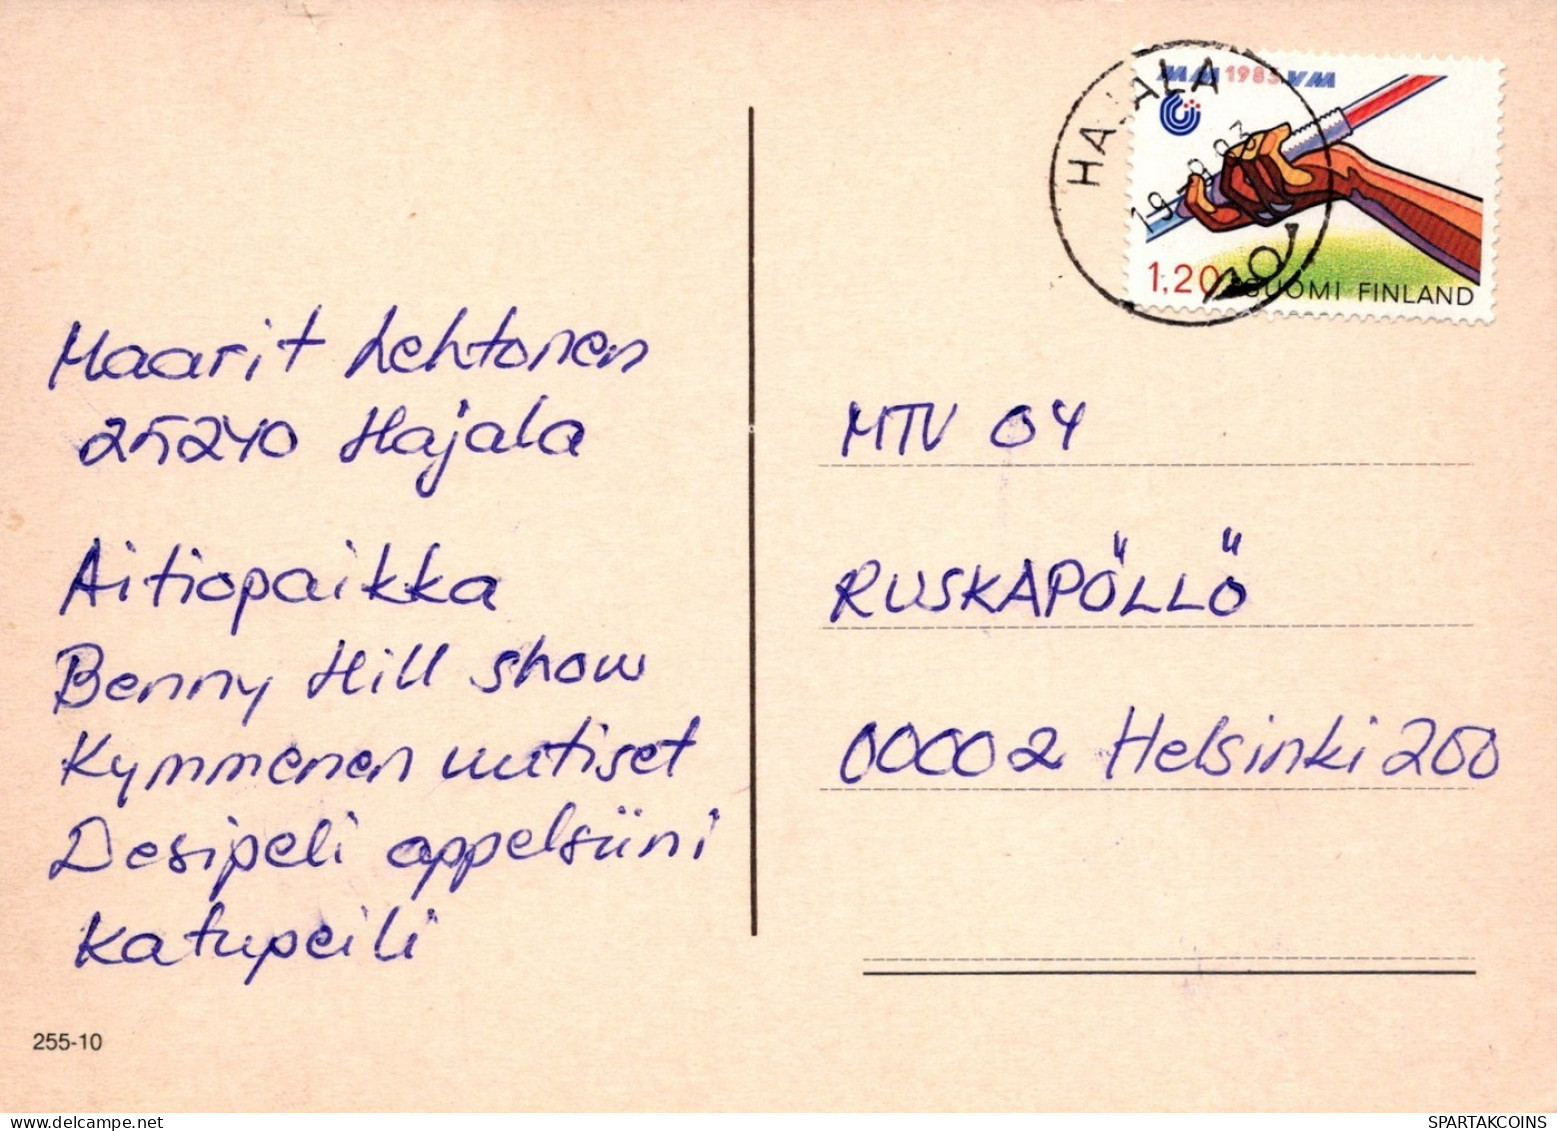 Maarit Lehtonen
25240 Hajala
Aitiopaikka
Benny Hill show
Kymmenen uutiset
Desipeli appelsiini
katupeili
255-10
MM 1983 VM
HAJALA
19.-9.83
1,20 SUOMI FINLAND
MTV 04
RUSKAPÖLLÖ
00002 Helsinki 200
SPARTAKCOINS
www.delcampe.net